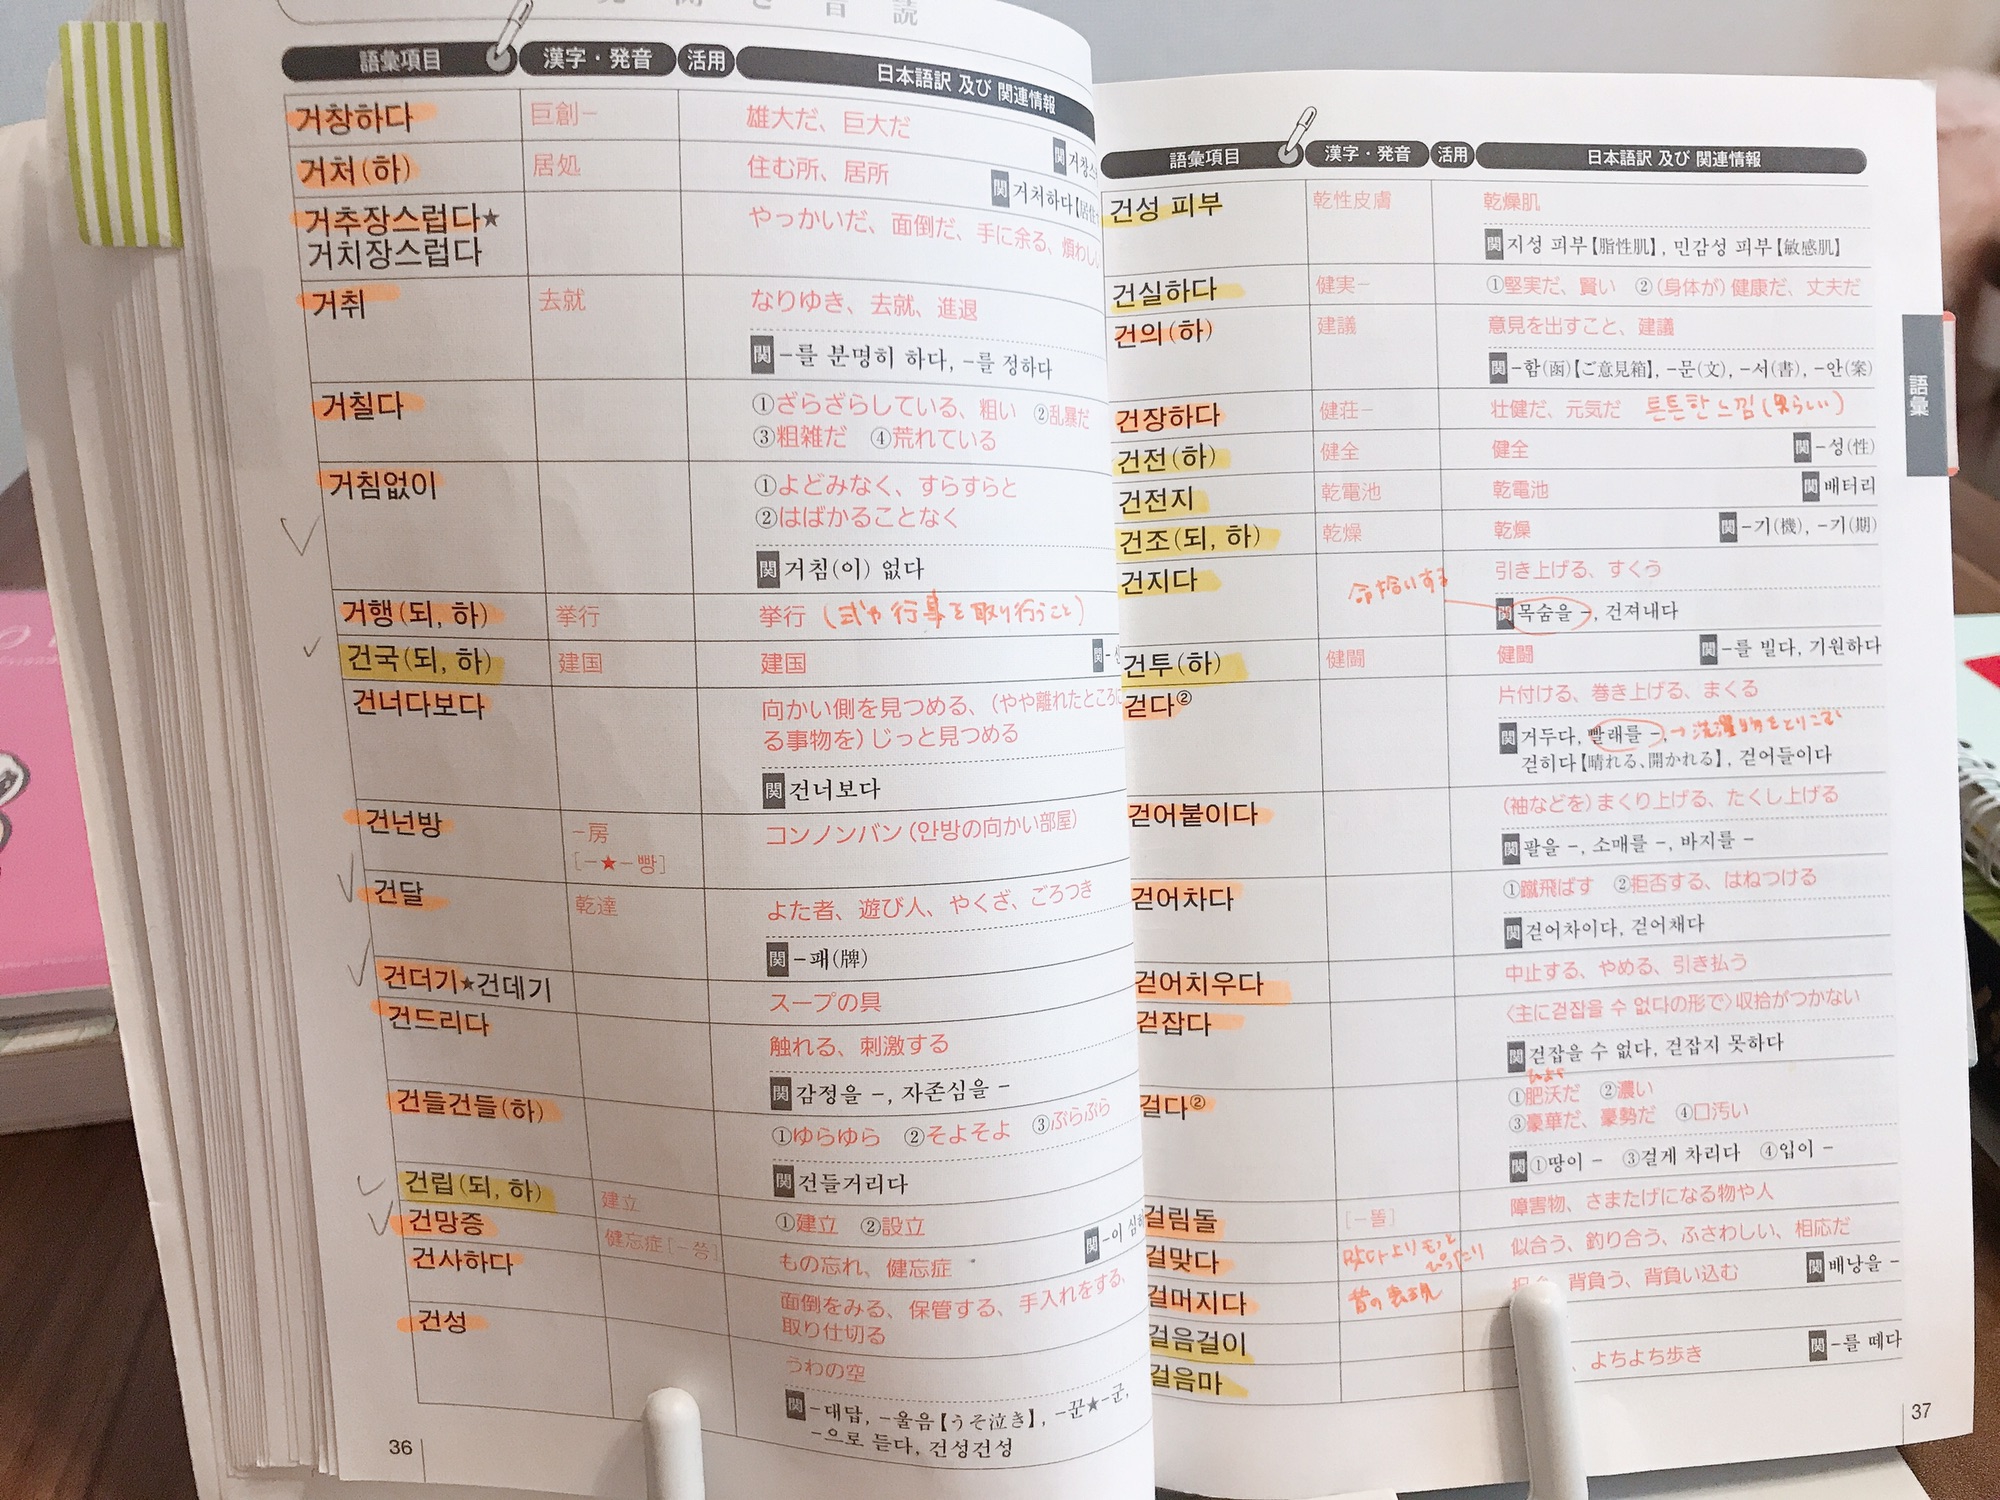 語彙項目 漢字・発音 活用 日本語訳 及び 関連情報
거창하다 巨創− 雄大だ、巨大だ
関 거창스
거처(하) 居処 住む所、居所
関 거처하다【居住
거추장스럽다★ やっかいだ、面倒だ、手に余る、煩わし
거치장스럽다
거취 去就 なりゆき、去就、進退
関 −를 분명히 하다, −를 정하다
거칠다 ①ざらざらしている、粗い ②乱暴だ
③粗雑だ ④荒れている
거침없이 ①よどみなく、すらすらと
②はばかることなく
関 거침(이) 없다
거행(되, 하) 挙行 挙行 (式や行事を取り行うこと)
건국(되, 하) 建国 建国 関 −
건너다보다 向かい側を見つめる、(やや離れたところに
る事物を)じっと見つめる
関 건너보다
건넌방 −房 コンノンバン(안방の向かい部屋)
[−★−빵]
건달 乾達 よた者、遊び人、やくざ、ごろつき
関 −패(牌)
건더기★건데기 スープの具
건드리다 触れる、刺激する
関 감정을 −, 자존심을 −
건들건들(하) ①ゆらゆら ②そよそよ ③ぶらぶら
関 건들거리다
건립(되, 하) 建立 ①建立 ②設立
건망증 健忘症[−쯩] もの忘れ、健忘症 関 −이 심하
건사하다 面倒をみる、保管する、手入れをする、
取り仕切る
건성 うわの空
関 −대답, −울음【うそ泣き】, −꾼★−군,
−으로 듣다, 건성건성
36
語彙項目 漢字・発音 活用 日本語訳 及び 関連情報
건성 피부 乾性皮膚 乾燥肌
関 지성 피부【脂性肌】, 민감성 피부【敏感肌】
건실하다 健実− ①堅実だ、賢い ②(身体が)健康だ、丈夫だ
건의(하) 建議 意見を出すこと、建議
関 −함(函)【ご意見箱】, −문(文), −서(書), −안(案)
건장하다 健荘− 壮健だ、元気だ 튼튼한 느낌 (男らしい)
건전(하) 健全 健全 関 −성(性)
건전지 乾電池 乾電池 関 배터리
건조(되, 하) 乾燥 乾燥 関 −기(機), −기(期)
건지다 引き上げる、すくう
命拾いする
関 목숨을 −, 건져내다
건투(하) 健闘 健闘 関 −를 빌다, 기원하다
걷다② 片付ける、巻き上げる、まくる
関 거두다, 빨래를 −, → 洗濯物をとりこむ
걷히다【晴れる、開かれる】, 걷어들이다
걷어붙이다 (袖などを)まくり上げる、たくし上げる
関 팔을 −, 소매를 −, 바지를 −
걷어차다 ①蹴飛ばす ②拒否する、はねつける
関 걷어차이다, 걷어채다
걷어치우다 中止する、やめる、引き払う
걷잡다 〈主に걷잡을 수 없다の形で〉収拾がつかない
関 걷잡을 수 없다, 걷잡지 못하다
ひよく
걸다② ①肥沃だ ②濃い
③豪華だ、豪勢だ ④口汚い
関 ①땅이 − ③걸게 차리다 ④입이 −
걸림돌 [−똘] 障害物、さまたげになる物や人
걸맞다 맞다よりもっと 似合う、釣り合う、ふさわしい、相応だ
ぴったり
걸머지다 昔の表現 背負う、背負い込む 関 배낭을 −
걸음걸이
걸음마 、よちよち歩き 関 −를 떼다
37
語彙